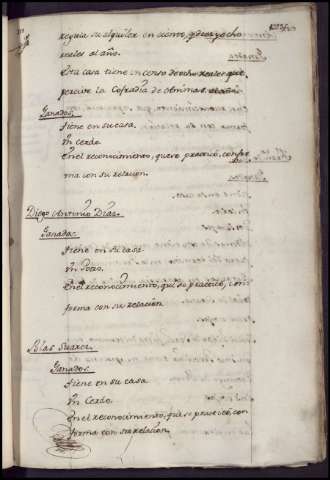 regula su alquiler en ciento, y diez y ocho
reales al año.
Esta casa tiene un censo de ocho reales que
percive la Cofradia de Animas al año
Ganados
Tiene en su casa.
Un Cerdo.
En el reconocimiento, que se practicó, confor
ma con su relacion.
Diego Antonio Diaz.
Ganados.
Tiene en su casa
Un Potro.
En el reconocimiento, que se practicó, con
forma con su relacion
Blas Suarez.
Ganados.
Tiene en su casa
Un Cerdo.
En el reconocimiento, que se practicó, con
forma con su relacion.